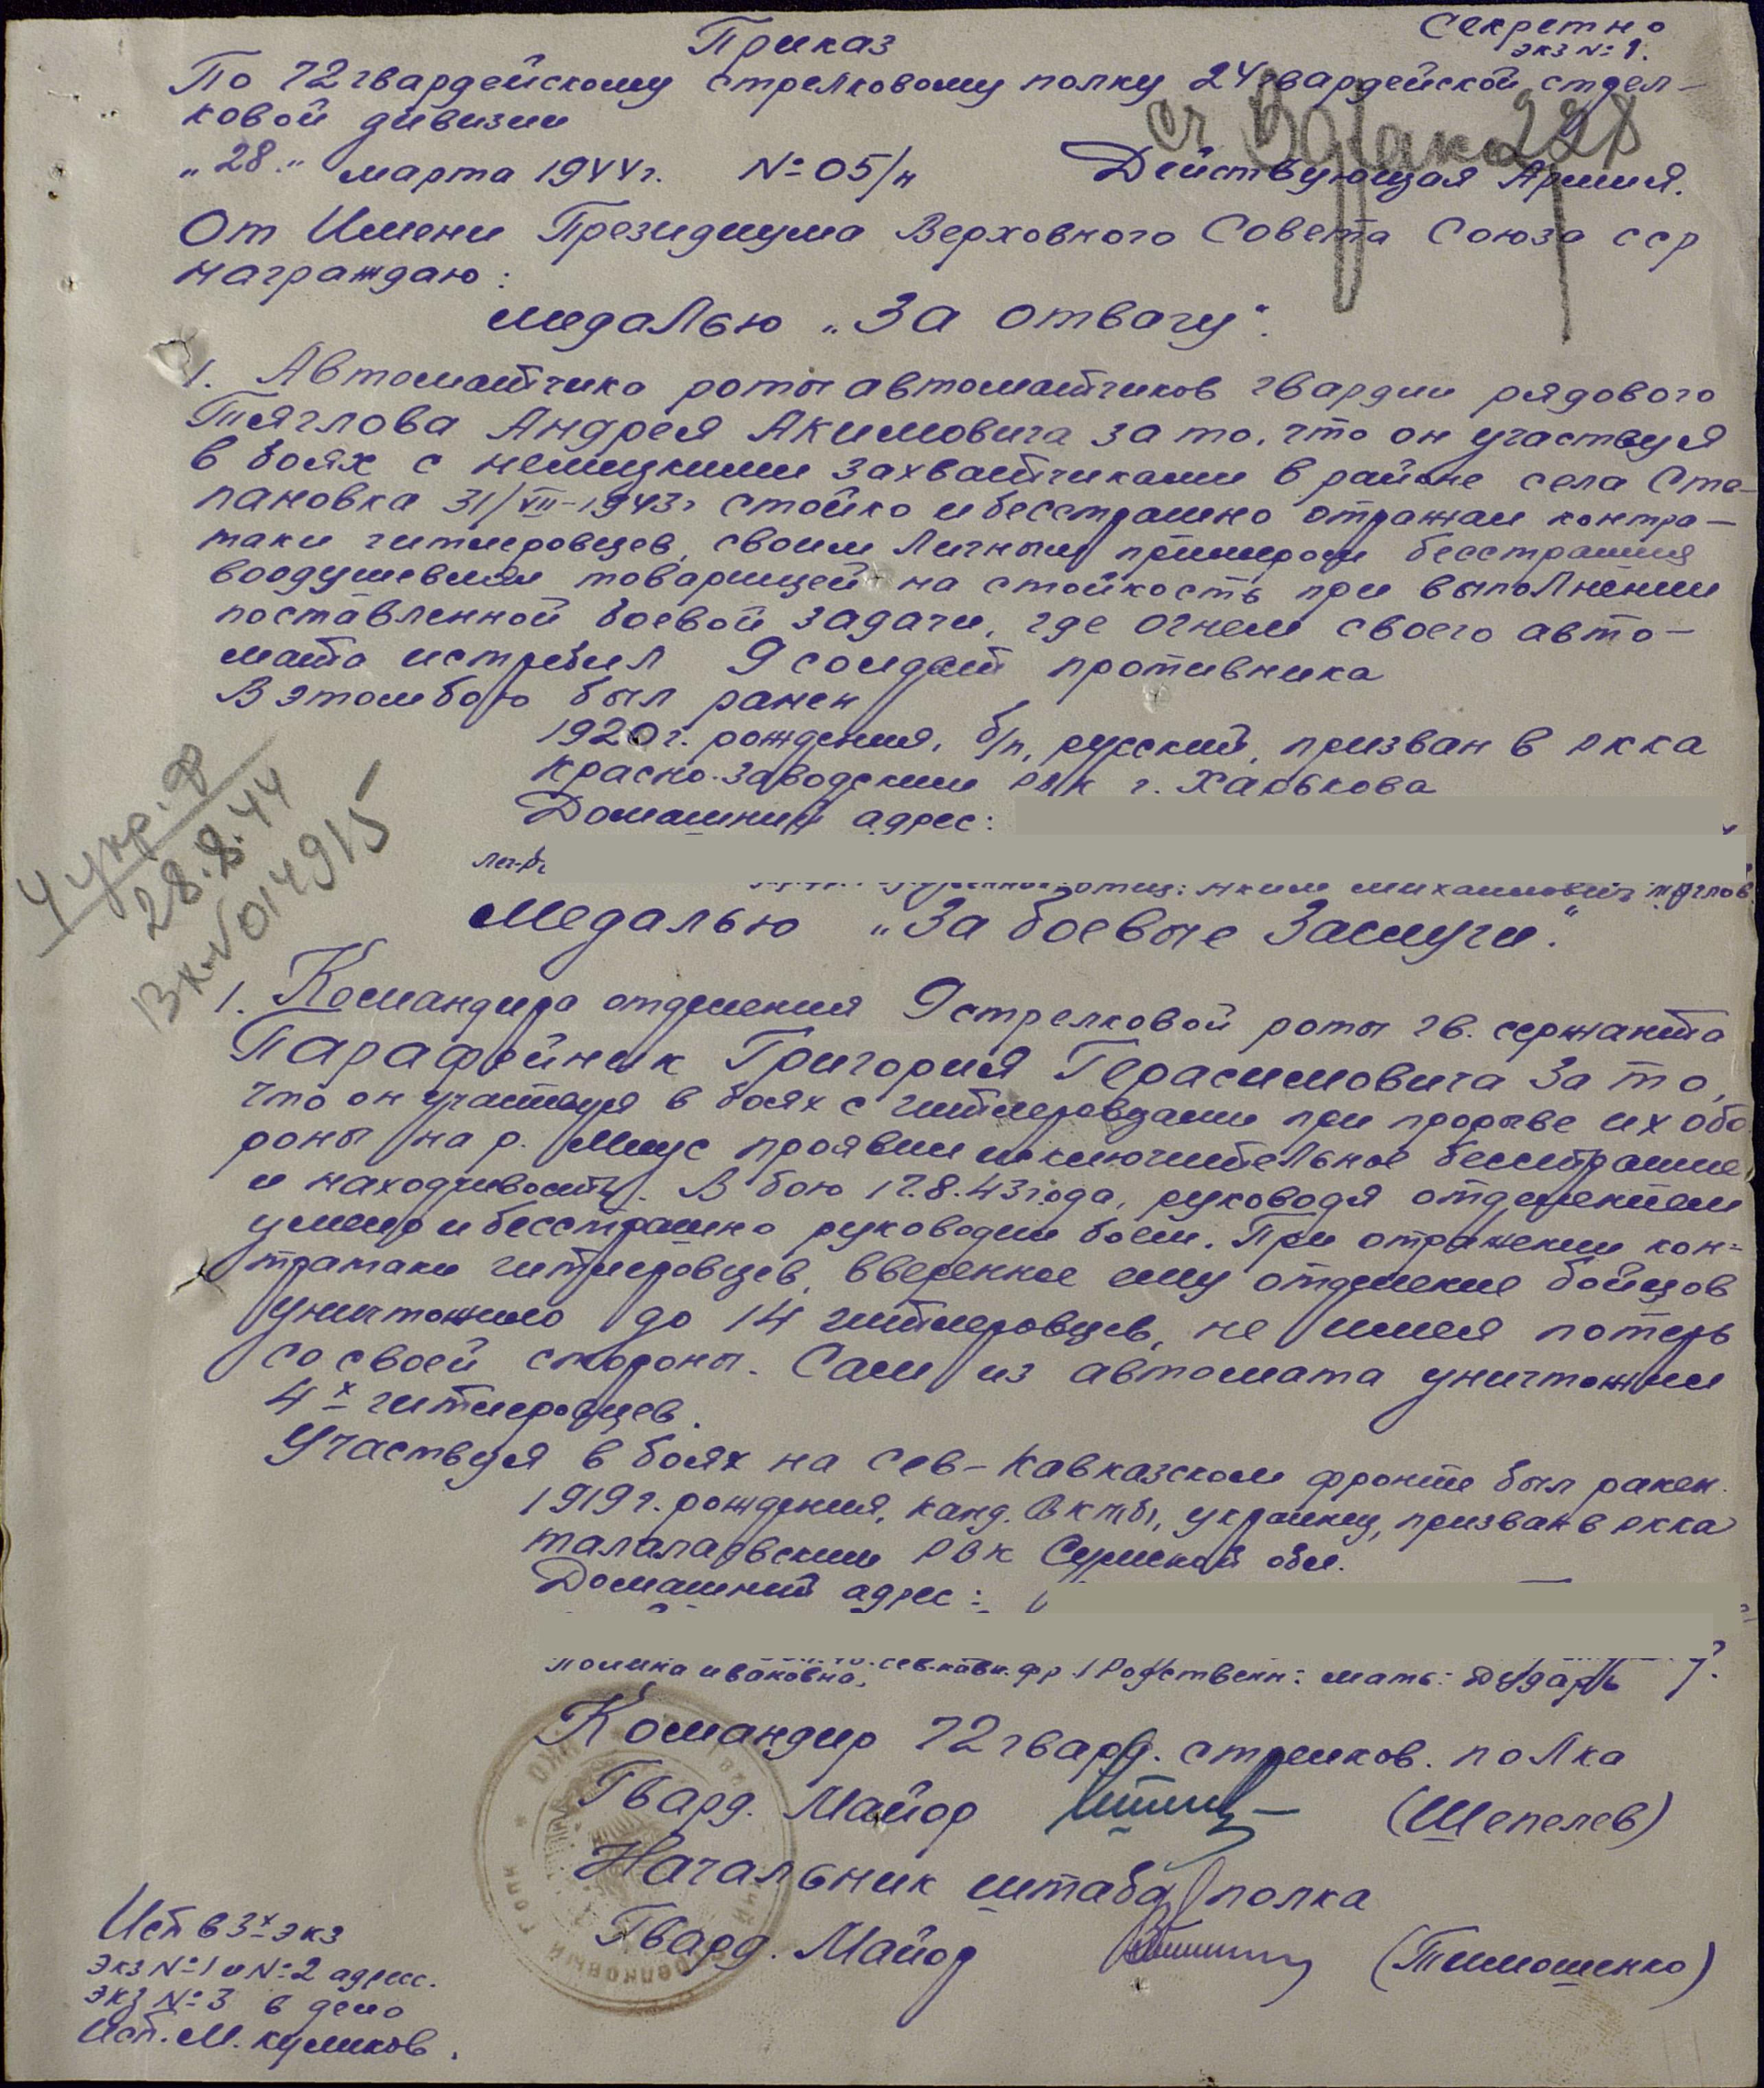 Секретно
экз №1.
Приказ
По 72 гвардейскому стрелковому полку 24 гвардейской стрел-
ковой дивизии
"28" марта 1944г. №05/н Действующая Армия.
От Имени Президиума Верховного Совета Союза сср
награждаю:
медалью "За отвагу".
1. Автоматчика роты автоматчиков гвардии рядового
Тяглова Андрея Акимовича за то, что он участвуя
в боях с немецкими захватчиками в районе села Сте-
пановка 31/VII-1943г стойко и бесстрашно отражал контра-
таки гитлеровцев, своим личным примером бесстрашия
воодушевлял товарищей на стойкость при выполнении
поставленной боевой задачи, где огнем своего авто-
мата истребил 9 солдат противника
В этом бою был ранен
1920г. рождения, б/п, русский, призван в ркка
красно-заводским рвк г. Харькова
Домашний адрес:
отец: Аким Михайлович тяглов
4 укр. ф
28.8.44
Вх №014915
Медалью "За боевые Заслуги".
1. Командира отделения 9 стрелковой роты гв. сержанта
Парафейник Григория Герасимовича за то,
что он участвуя в боях с гитлеровцами при прорыве их обо
роны на р. Миус проявил исключительное бесстрашие
и находчивость. В бою 17.8.43 года, руководя отделением
умело и бесстрашно руководил боем. При отражении кон-
тратаки гитлеровцев, вверенное ему отделение бойцов
уничтожило до 14 гитлеровцев, не имея потерь
со своей стороны. Сам из автомата уничтожил
4х гитлеровцев.
Участвуя в боях на Сев-Кавказском фронте был ранен.
1919г. рождения, канд. ВКП/б/, украинец, призван в ркка
талалаевским РВК Сумской обл.
Домашний адрес:
сев.кавк.фр. Родственн: мать: Дударь
ивановна.
Командир 72 гвард. стрелков. полка
Гвард. Майор (Шепелев)
Начальник штаба полка
Гвард. Майор (Тимошенко)
Исп в 3х экз
экз №1 и №2 адресс.
экз №3 в дело
Исп. М. куликов.